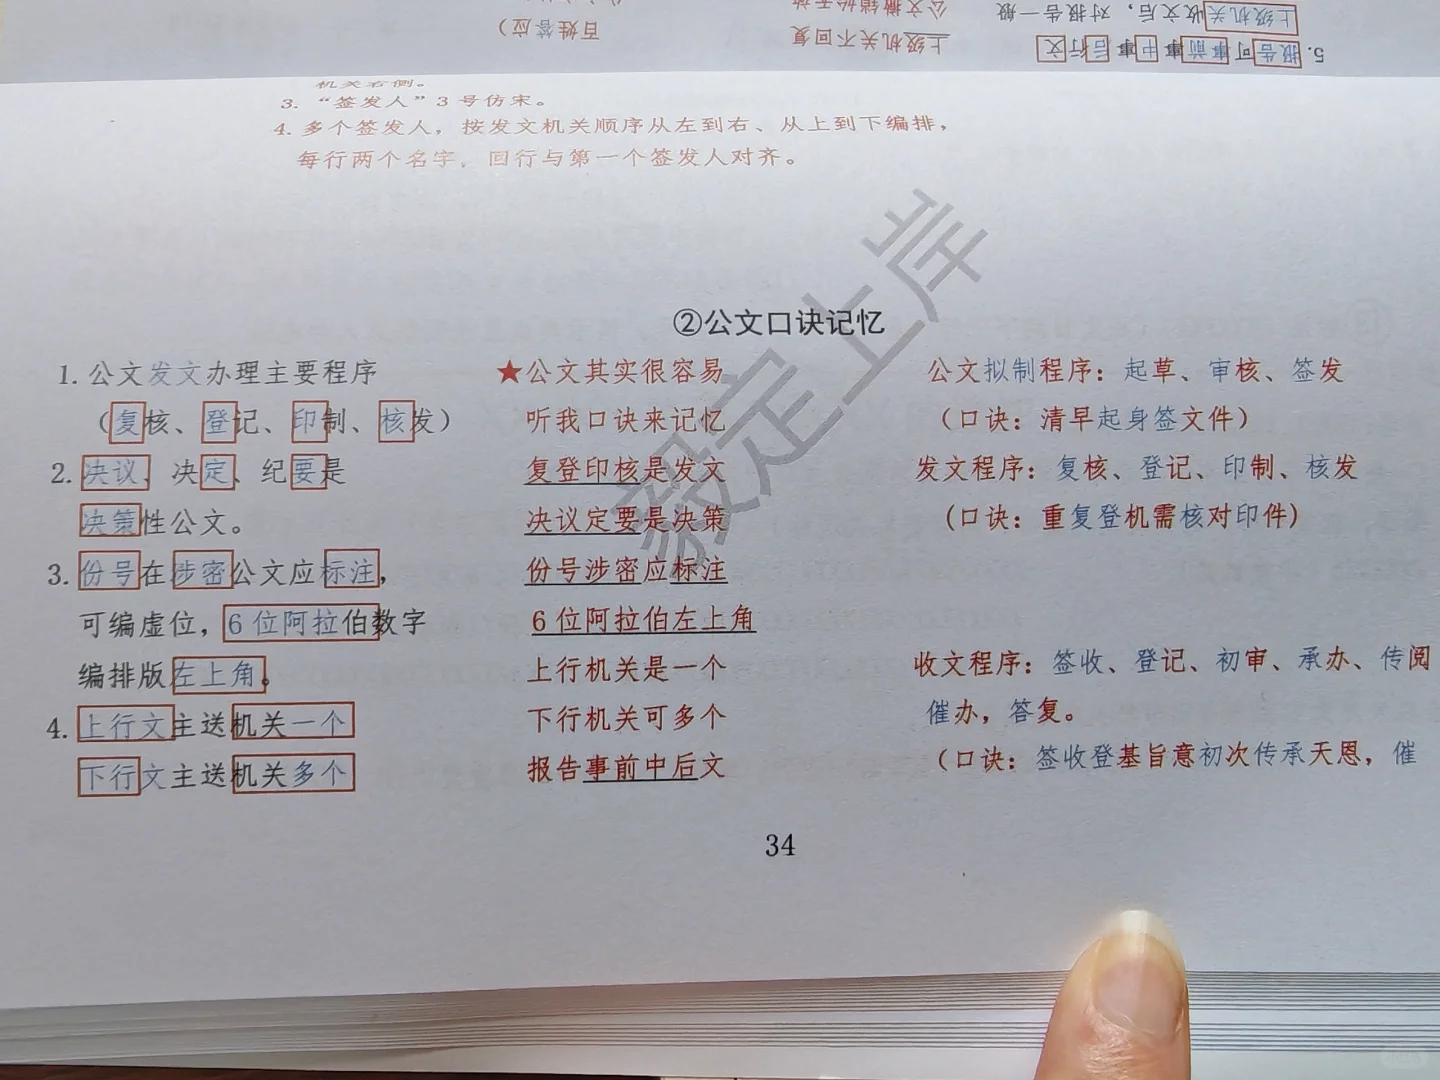 5. 报告可事前事中事后行文
上级机关收文后，对报告一般
上级机关不回复
百姓答应）
机关右侧。
3. “签发人”3号仿宋。
4. 多个签发人，按发文机关顺序从左到右、从上到下编排，
每行两个名字，回行与第一个签发人对齐。
②公文口诀记忆
1. 公文发文办理主要程序
（复核、登记、印制、核发）
2. 决议、决定、纪要是
决策性公文。
3. 份号在涉密公文应标注，
可编虚位，6位阿拉伯数字
编排版左上角。
4. 上行文主送机关一个
下行文主送机关多个
★公文其实很容易
听我口诀来记忆
复登印核是发文
决议定要是决策
份号涉密应标注
6位阿拉伯左上角
上行机关是一个
下行机关可多个
报告事前中后文
公文拟制程序：起草、审核、签发
（口诀：清早起身签文件）
发文程序：复核、登记、印制、核发
（口诀：重复登机需核对印件）
收文程序：签收、登记、初审、承办、传阅
催办，答复。
（口诀：签收登基旨意初次传承天恩，催
34
毅定上岸